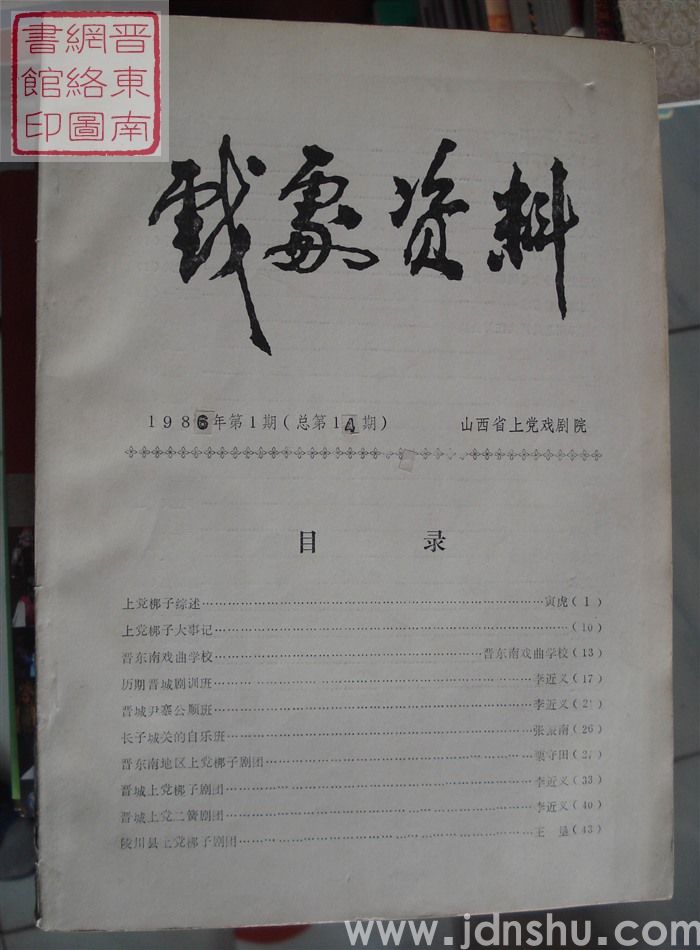 晋東南
網絡圖
書館印
戏剧资料
1986年第1期(总第14期) 山西省上党戏剧院
目 录
上党梆子综述……寅虎(1)
上党梆子大事记……(10)
晋东南戏曲学校……晋东南戏曲学校(13)
历期晋城剧训班……李近义(17)
晋城尹寨公顺班……李近义(2
长子城关的自乐班……张振南(26)
晋东南地区上党梆子剧团……栗守田(2
晋城上党梆子剧团……李近义(33)
晋城上党二簧剧团……李近义(40)
陵川县上党梆子剧团……王 垦(43)
www.jdnshu.com